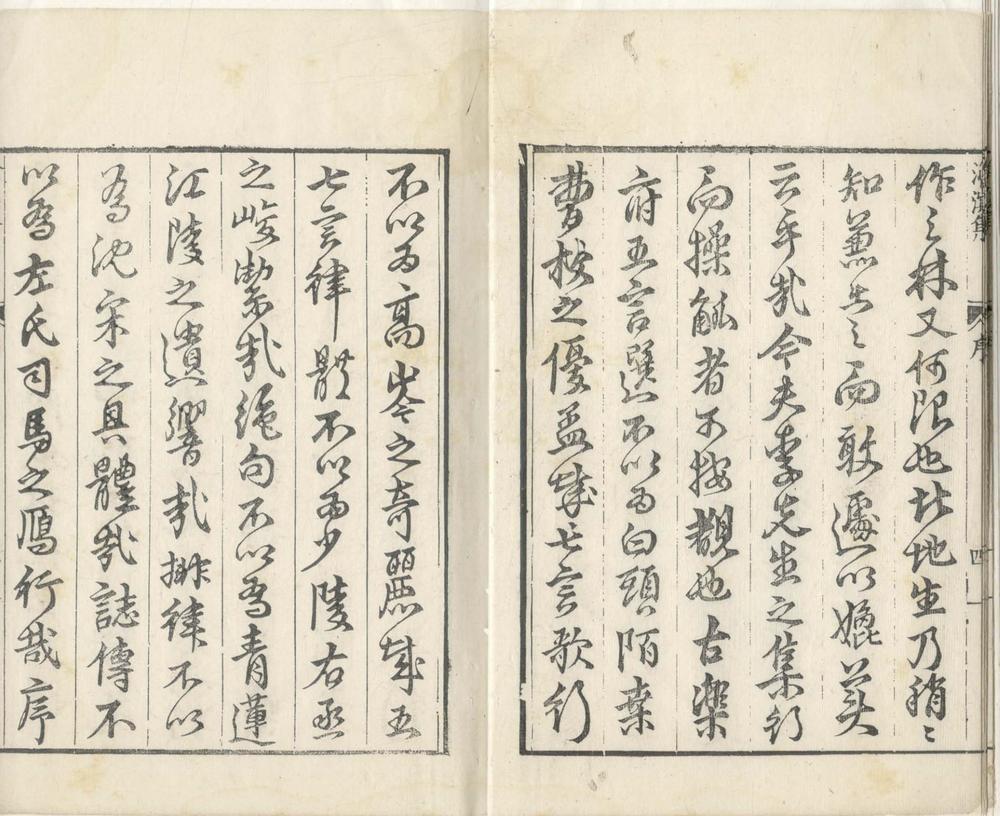 滄溟集 序 四
作之林又何限也北地生乃稍〻
知兼出之而敢遽以媲美
云乎哉今夫李先生之集行
而操觚者可按覩也古樂
府五言選不以為白頭陌桒
曹枚之優孟哉七言歌行
不以為高岑之奇麗哉五
七言律體不以為少陵右丞
之峻絜哉絶句不以為青蓮
江陵之遺響哉排律不以
為沈宋之具體哉誌傳不
以為左氏司馬之鴈行哉序